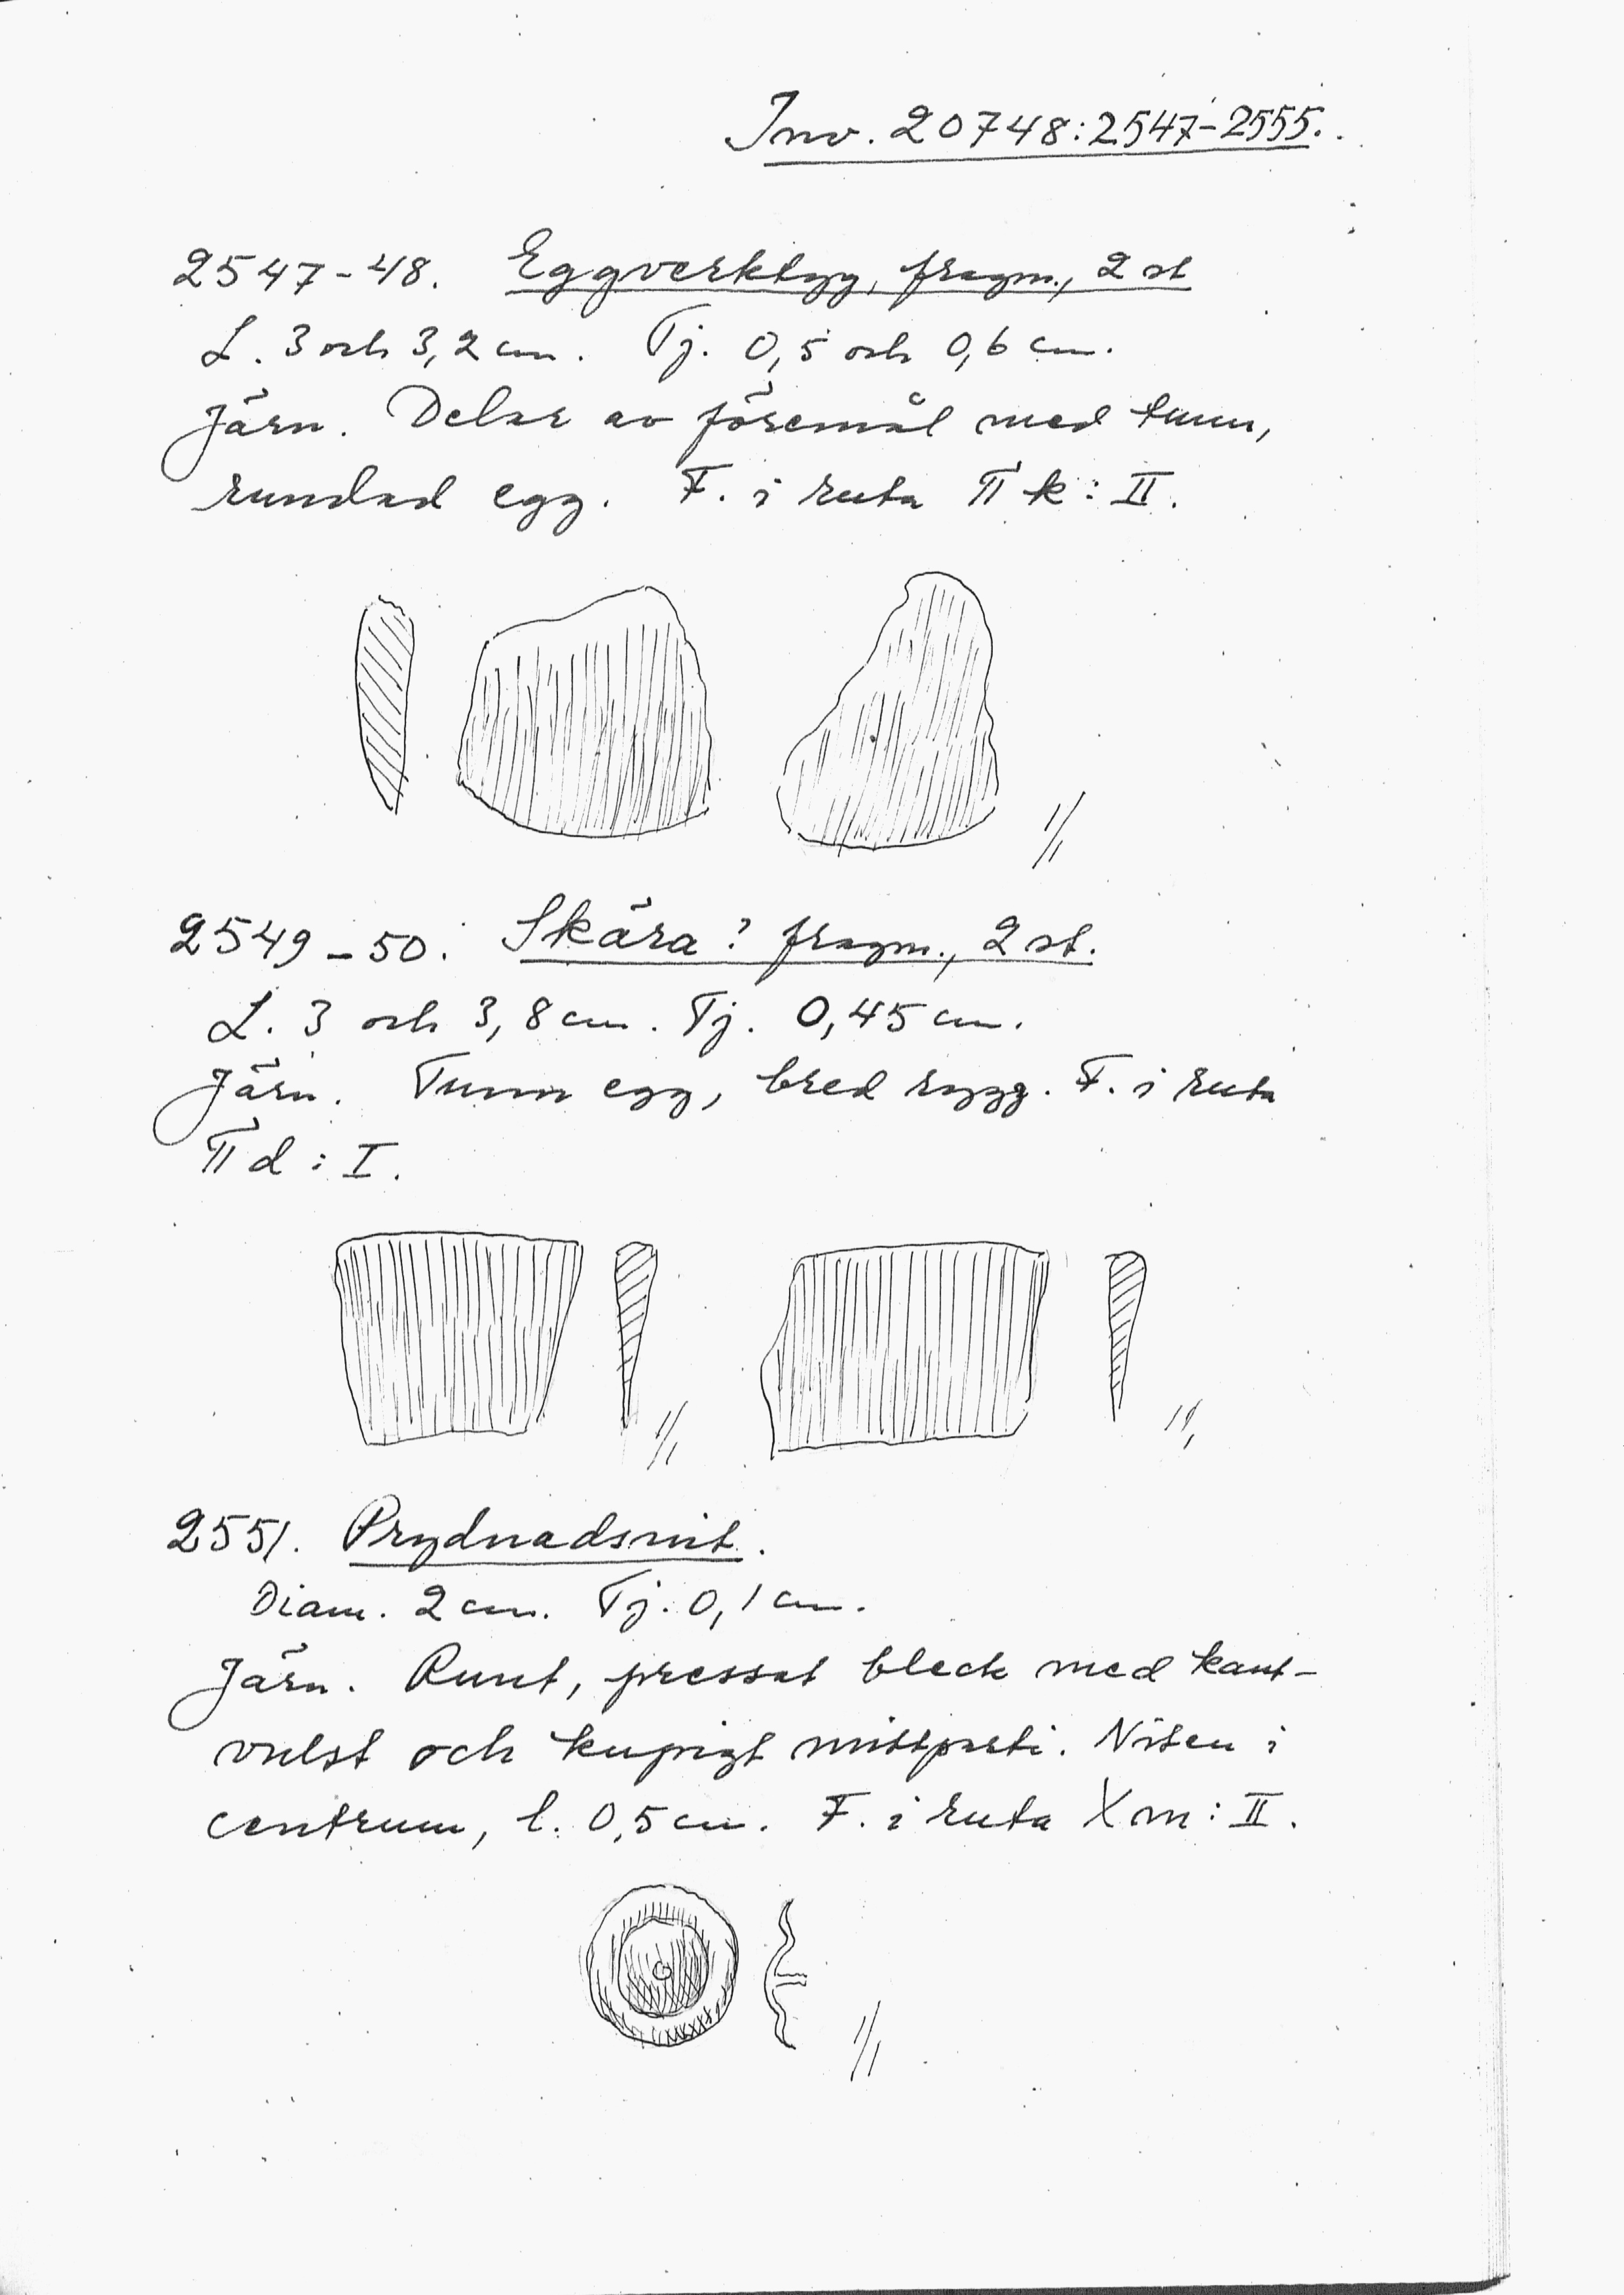 Inv. 20748:2547-2555.
2547-48. Eggverktyg, fragm., 2 st
L. 3 och 3,2 cm. Tj. 0,5 och 0,6 cm.
Järn. Delar av föremål med tunn,
rundad egg. F. i ruta Π k : II.
1/1
2549-50. Skära? fragm., 2 st.
L. 3 och 3,8 cm. Tj. 0,45 cm.
Järn. Tunn egg, bred rygg. F. i ruta
Π d : I.
1/1 1/1
2551. Prydnadsnit.
Diam. 2 cm. Tj. 0,1 cm.
Järn. Runt, pressat bleck med kant-
vulst och kupigt mittparti. Niten i
centrum, l. 0,5 cm. F. i ruta X m : II.
1/1